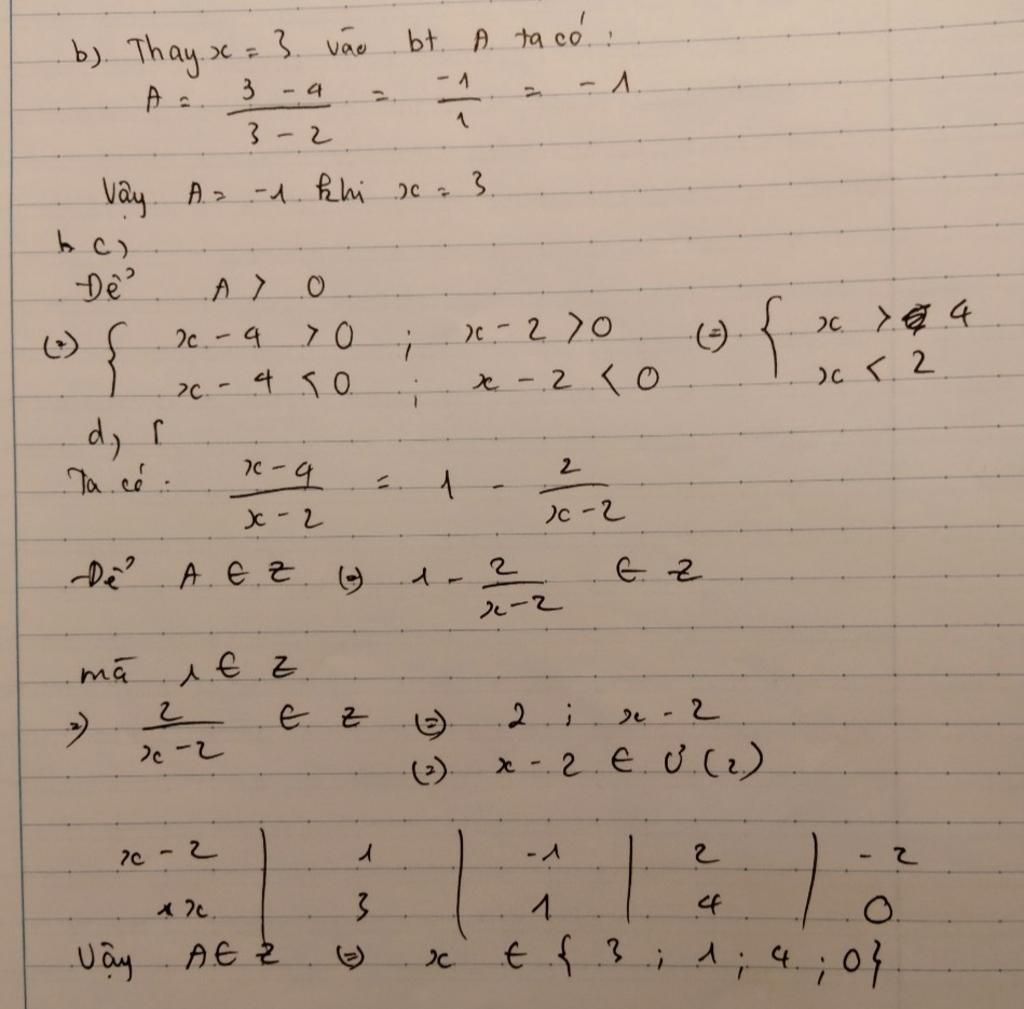 b). Thay x = 3 vào bt A ta có:
A = \frac{3 - 4}{3 - 2} = \frac{-1}{1} = -1
Vậy A = -1 khi x = 3.
b c)
Để A > 0
(=) { x - 4 > 0 ; x - 2 > 0 (=) { x > 4
x - 4 < 0 ; x - 2 < 0 x < 2
d)
Ta có: \frac{x - 4}{x - 2} = 1 - \frac{2}{x - 2}
Để A ∈ Z (=) 1 - \frac{2}{x - 2} ∈ Z
mà 1 ∈ Z
=) \frac{2}{x - 2} ∈ Z (=) 2 ⋮ x - 2
(=) x - 2 ∈ Ư(2)
x - 2 | 1 | -1 | 2 | -2
x | 3 | 1 | 4 | 0
Vậy A ∈ Z (=) x ∈ { 3 ; 1 ; 4 ; 0 }